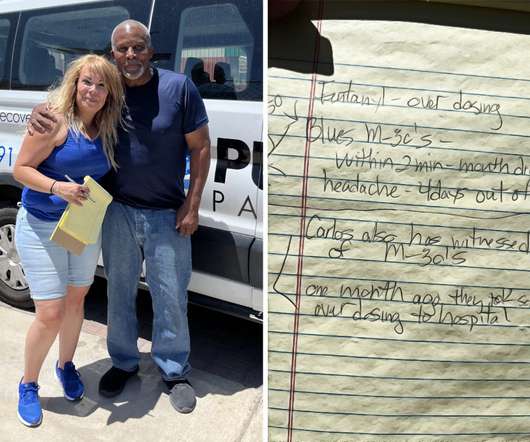 ecove
91
PU
PA
Fentanyl - over dosing
Blues M-30's -
within 2 min - mouth d
headache - 4 days out of
Carlos also has witnessed
of M-30's
one month ago they took
over dosing to hospital